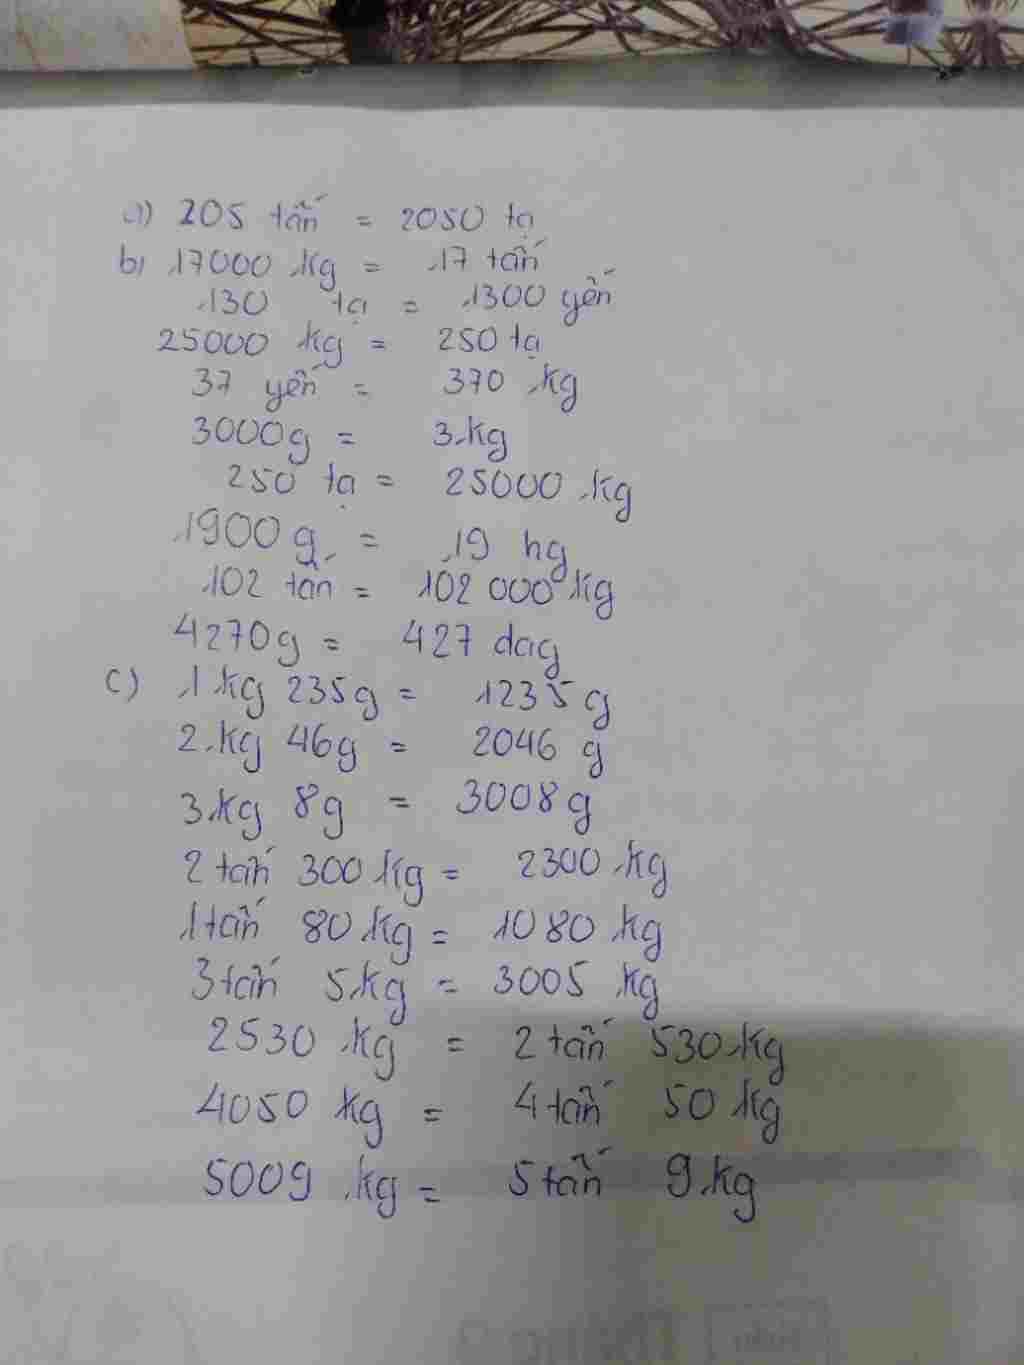 a) 205 tấn = 2050 tạ
b) 17000 kg = 17 tấn
130 tạ = 1300 yến
25000 kg = 250 tạ
37 yến = 370 kg
3000g = 3kg
250 tạ = 25000 kg
1900 g = 19 hg
102 tấn = 102 000 kg
4270g = 427 dag
c) 1 kg 235g = 1235 g
2 kg 46g = 2046 g
3kg 8g = 3008g
2 tấn 300 kg = 2300 kg
1 tấn 80 kg = 1080 kg
3 tấn 5 kg = 3005 kg
2530 kg = 2 tấn 530 kg
4050 kg = 4 tấn 50 kg
5009 kg = 5 tấn 9 kg